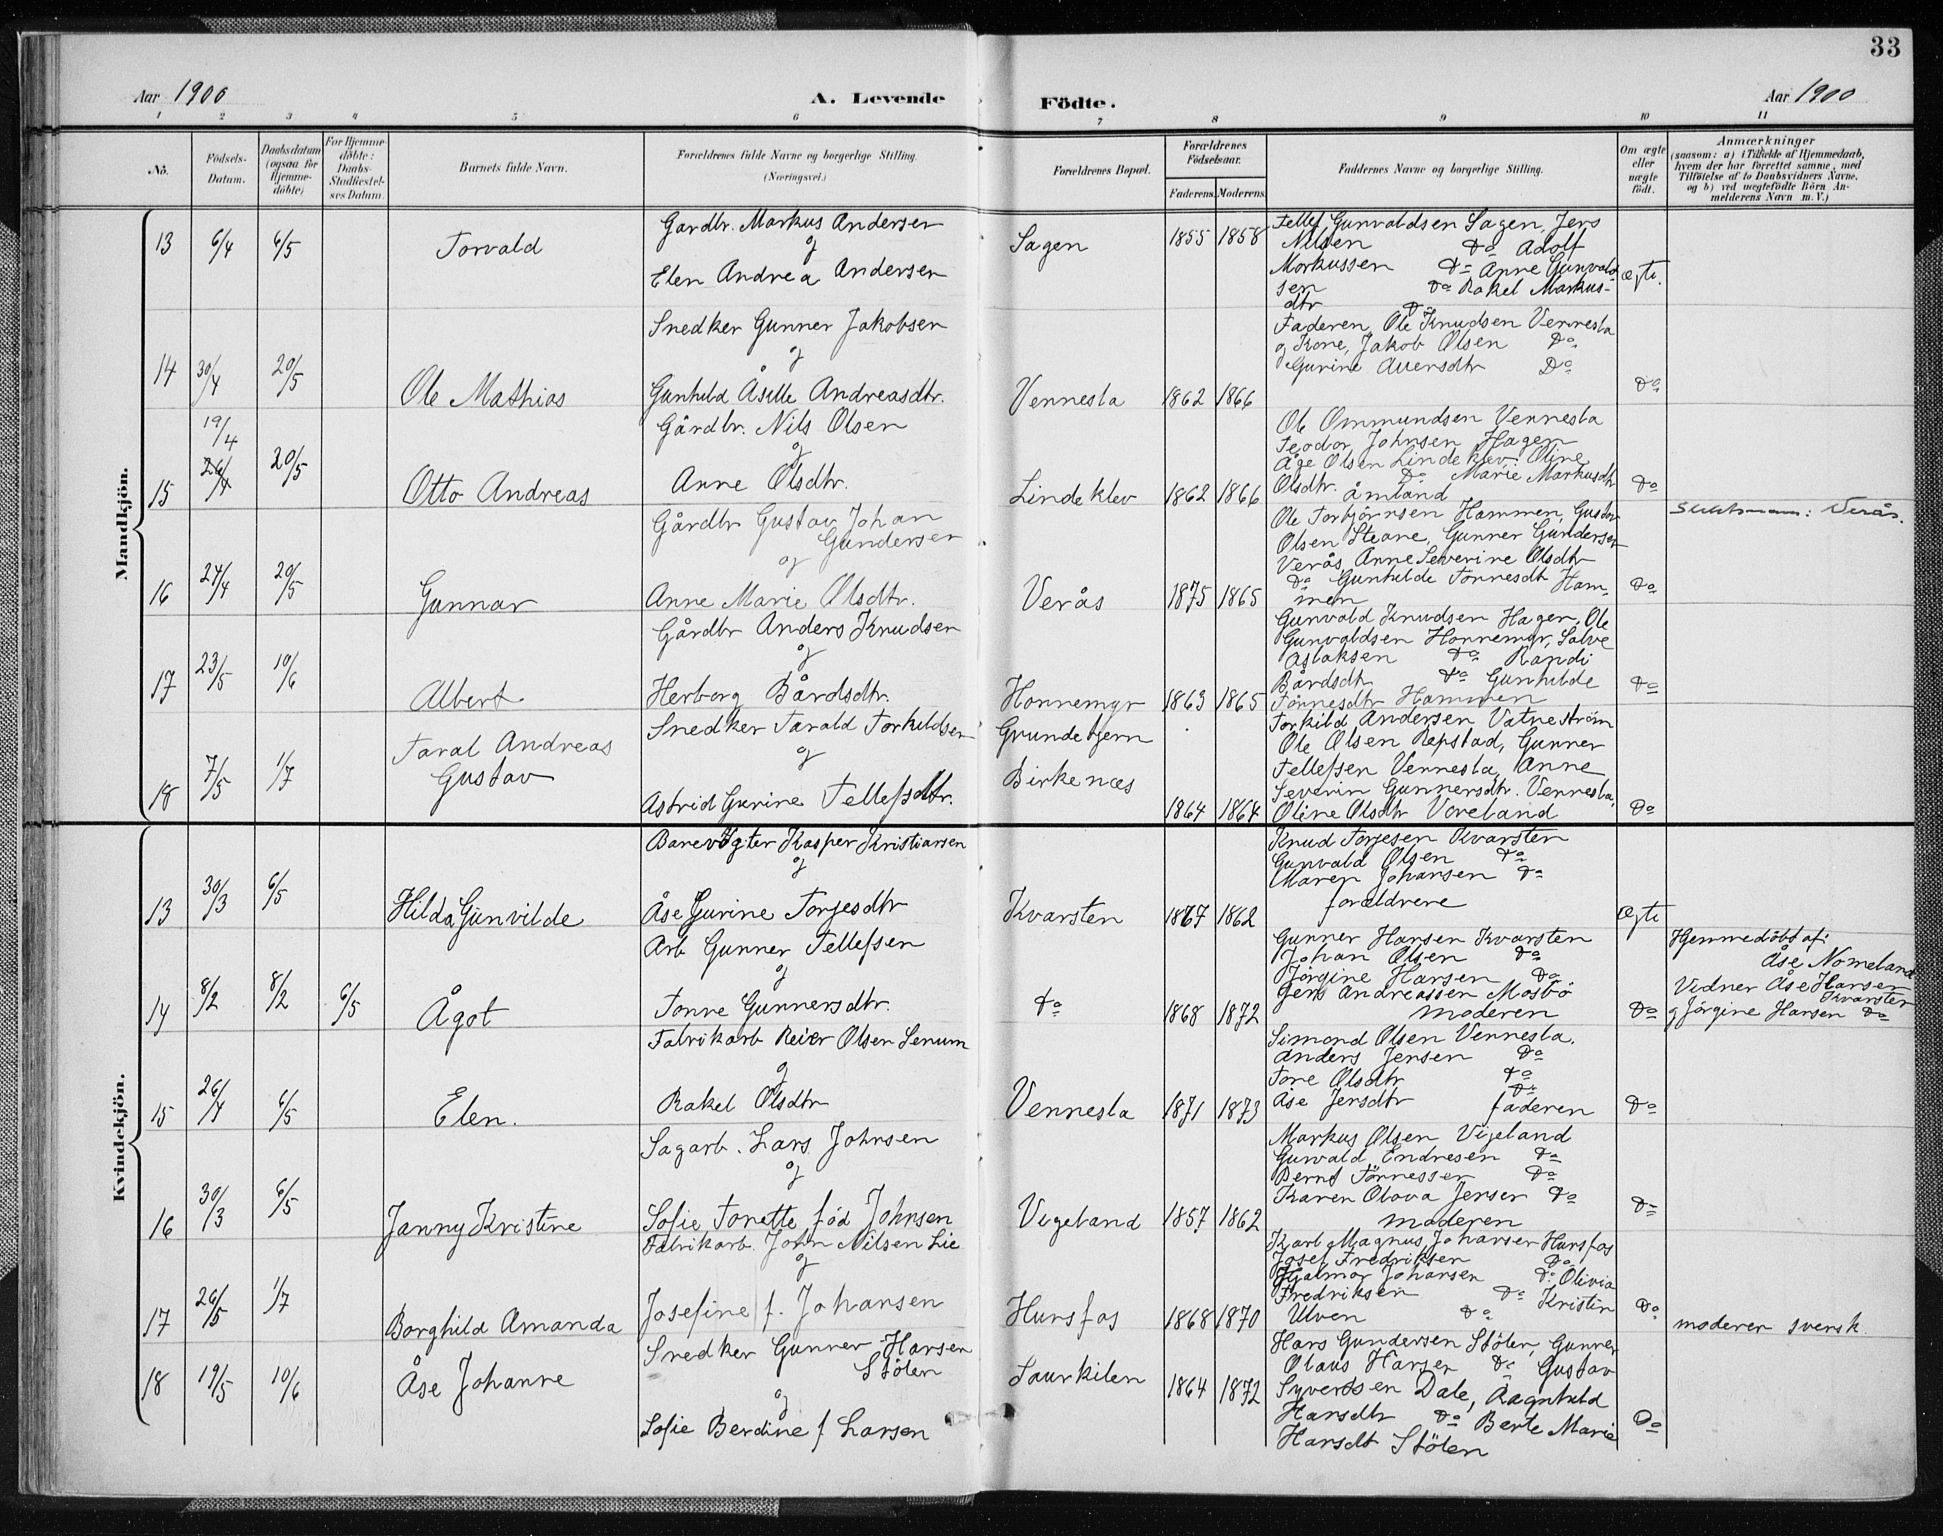 33
Aar 1900
A. Levende
Födte.
Aar 1900
1 2 3 4 5 6 7 8 9 10 11
No.
Födsels-
Datum.
Daabsdatum
(ogsaa for
Hjemme-
döbte)
For Hjemme-
döbte:
Daabs-
Stadfæstel-
ses Datum.
Barnets fulde Navn.
Forældrenes fulde Navne og borgerlige Stilling.
(Næringsvei.)
Forældrenes Bopæl.
Forældrenes
Födselsaar.
Faderens. Moderens.
Faddernes Navne og borgerlige Stilling.
Om ægte
eller
uægte
födt.
Anmærkninger
(saasom: a) i Tilfælde af Hjemmedaab,
hvem der har forrettet samme, med
Tilföielse af to Daabsvidners Navne,
og b) ved uægtefödte Börn An-
melderens Navn m. V.)
Mandkjön.
13 6/4 6/5 Torvald
Gardbr. Markus Andersen
og
Elen Andrea Andersen
Sagen 1855 1858
Tellef Gunvaldsen Sagen, Jens
Nilsen Do Adolf
Morkussen Do Anne Gunvald-
sen Do Rakel Markus-
dtr Do
Ægte.
14 30/4 20/5 Ole Mathias
Snedker Gunner Jakobsen
og
Gunhild Åsille Andreasdtr.
Vennesla 1862 1866
Faderen, Ole Knudsen Vennesla
og Kone, Jakob Olsen Do
Gurine Auersdtr Do
Do
15 19/4 26/4 20/5 Otto Andreas
Gårdbr. Nils Olsen
og
Anne Olsdtr.
Lindeklev 1862 1866
Ole Ommundsen Vennesla
Teodor Johnsen Hagen
Åge Olsen Lindeklev, Oline
Olsdtr. Do Marie Markusdtr
Åmland
Do
16 24/4 20/5 Gunnar
Gårdbr Gustav Johan
Gundersen
og
Anne Marie Olsdtr.
Verås 1875 1865
Ole Torbjörnsen Hammen, Gustav
Olsen Steane, Gunner Gundersen
Verås, Anne Severine Olsdtr
Do Gunhilde Tönnesdt Ham-
men
Do
Verås.
17 23/5 10/6 Albert
Gårdbr Anders Knudsen
og
Herborg Bårdsdtr.
Honnemyr 1863 1865
Gunvald Knudsen Hagen, Ole
Gunvaldsen Honnemyr, Salve
Aslaksen Do Randi
Bårdsdt Do Gunhilde
Tönnesdtr Hammen
Do
18 7/5 1/7 Taral Andreas
Gustav
Snedker Tarald Torkildsen
og
Astrid Gurine Tellefsdtr.
Grundetjern
Birkenæs
1864 1864
Torkild Andersen Vatneström
Ole Olsen Repstad, Gunner
Tellefsen Vennesla, Anne
Severin Gunnersdtr. Vennesla,
Oline Olsdtr Voreland
Do
Kvindekjön.
13 30/3 6/5 Hilda Gunvilde
Banevogter Kasper Kristiansen
og
Åse Gurine Torjesdtr
Kvarsten 1867 1862
Knud Torjesen Kvarsten
Gunvald Olsen Do
Maren Johansen Do
forældrene
Ægte
14 8/2 8/2 6/5 Ågot
Arb Gunner Tellefsen
og
Tonne Gunnersdtr.
Do 1868 1872
Gunner Hansen Kvarsten
Johan Olsen Do
Jörgine Hansen Do
Jens Andreassen Mosbö
moderen
Do
Hjemmedöbt af:
Åse Nomeland
Vidner Åse Hansen
Kvarsten
og Jörgine Hansen Do
15 26/4 6/5 Elen.
Fabrikarb Reier Olsen Senum
og
Rakel Olsdtr
Vennesla 1871 1873
Simond Olsen Vennesla.
Anders Jensen Do
Tore Olsdtr Do
Åse Jensdtr Do
faderen
Do
16 30/3 6/5 Janny Kristine
Sagarb. Lars Johnsen
og
Sofie Tonette föd Johnsen
Vigeland 1857 1862
Markus Olsen Vigeland
Gunvald Endresen Do
Bernt Tönnessen Do
Karen Olava Jensen Do
moderen
Do
17 26/5 1/7 Borghild Amanda
Fabrikarb. John Nilsen Lie
og
Josefine f. Johansen
Hunsfos 1868 1870
Karl Magnus Johansen Hunsfos
Josef Fredriksen Do
Hjalmar Johansen Do Olivia
Fredriksen Do Kristin
Ulven Do
Do
moderen svensk.
18 19/5 10/6 Åse Johanne
Snedker Gunner Hansen
Stölen
og
Sofie Berdine f Larsen
Saurkilen 1864 1872
Hans Gundersen Stölen, Gunner
Olaus Hansen Do Gustav
Syvertsen Dale, Ragnhild
Hansdtr Do Berte Marie
Hansdt Stölen
Do